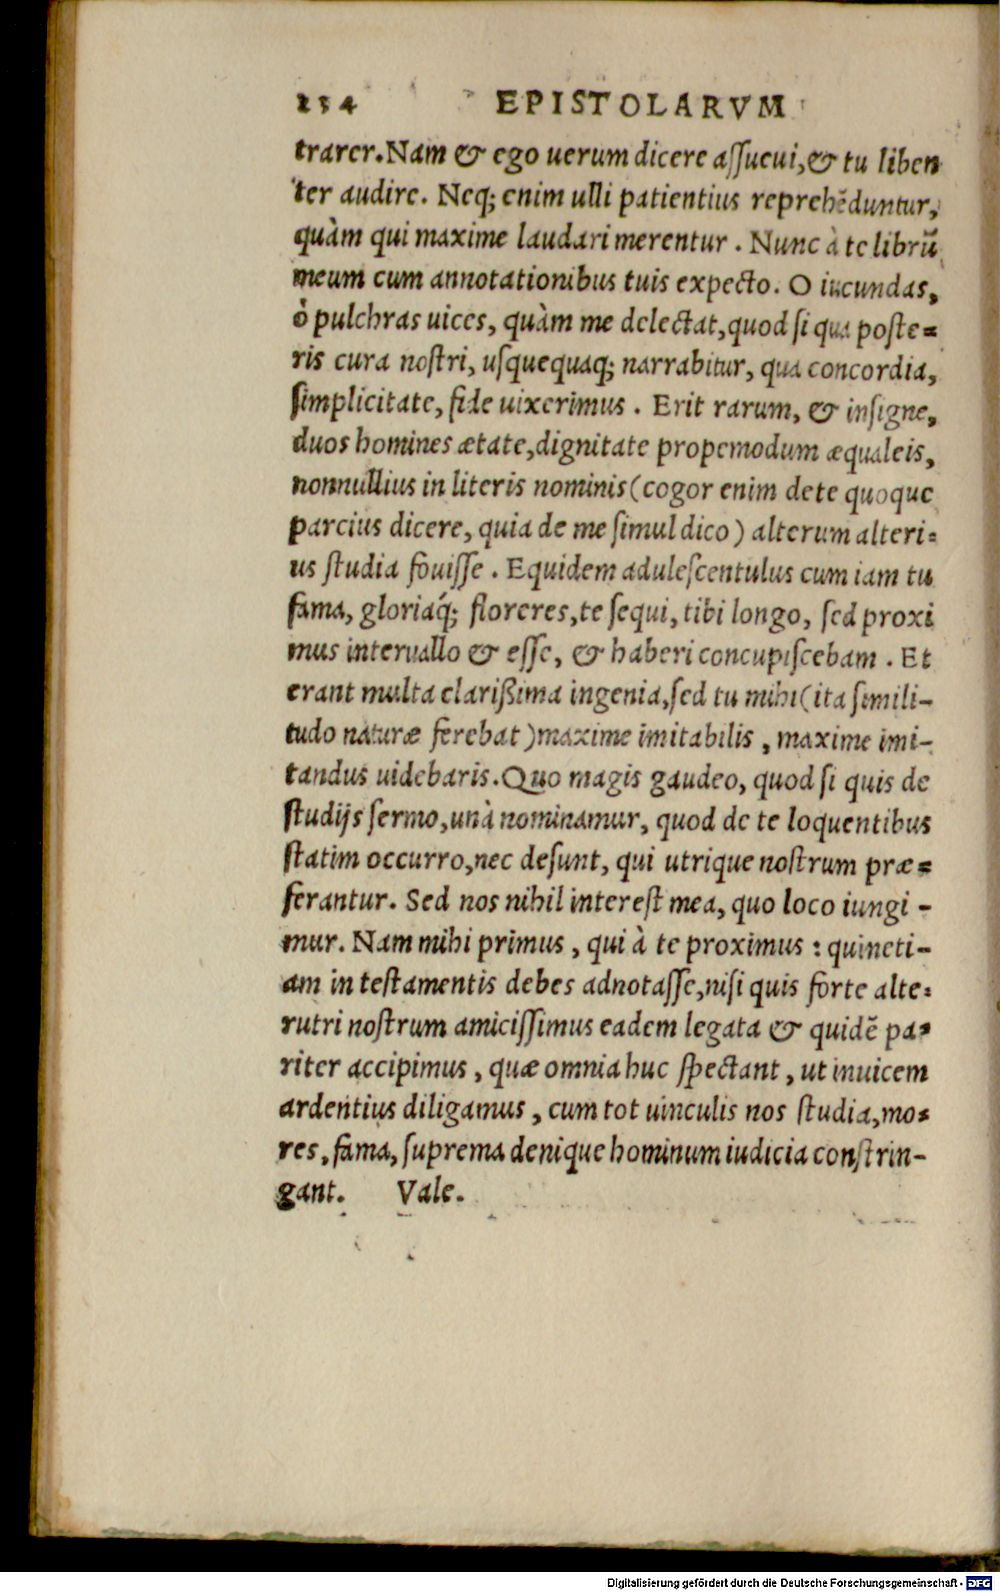 254 EPISTOLARVM
trarer. Nam & ego uerum dicere assueui, & tu liben
ter audire. Neq; enim ulli patientius reprehēduntur,
quàm qui maxime laudari merentur. Nunc à te librū
meum cum annotationibus tuis expecto. O iucundas,
ô pulchras uices, quàm me delectat, quod si qua poste=
ris cura nostri, usquequaq; narrabitur, qua concordia,
simplicitate, fide uixerimus. Erit rarum, & insigne,
duos homines ætate, dignitate propemodum æqualeis,
nonnullius in literis nominis (cogor enim de te quoque
parcius dicere, quia de me simul dico) alterum alteri=
us studia fouisse. Equidem adulescentulus cum iam tu
fama, gloriaq́; floreres, te sequi, tibi longo, sed proxi
mus interuallo & esse, & haberi concupiscebam. Et
erant multa clarißima ingenia, sed tu mihi (ita simili-
tudo naturæ ferebat) maxime imitabilis, maxime imi-
tandus uidebaris. Quo magis gaudeo, quod si quis de
studijs sermo, unà nominamur, quod de te loquentibus
statim occurro, nec desunt, qui utrique nostrum præ=
ferantur. Sed nos nihil interest mea, quo loco iungi-
mur. Nam mihi primus, qui à te proximus: quineti-
am in testamentis debes adnotasse, nisi quis forte alte=
rutri nostrum amicissimus eadem legata & quidē pa=
riter accipimus, quæ omnia huc spectant, ut inuicem
ardentius diligamus, cum tot uinculis nos studia, mo=
res, fama, suprema denique hominum iudicia constrin-
gant. Vale.
Digitalisierung gefördert durch die Deutsche Forschungsgemeinschaft - DFG